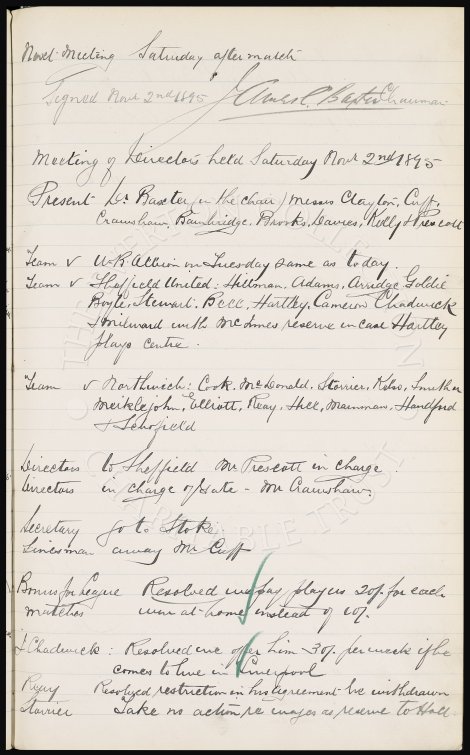 Next Meeting Saturday after match
Signed Novr 2nd 1895 James C. Baxter Chairman
Meeting of Directors held Saturday Novr 2nd 1895
Present Dr Baxter (in the chair) Messrs Clayton, Cuff,
Crawshaw, Bainbridge, Brooks, Davies, Kelly & Prescott
Team v W.B. Albion on Tuesday same as today.
Team v Sheffield United: Hillman, Adams, Arridge, Goldie
Boyle, Stewart, Bell, Hartley, Cameron, Chadwick
& Milward with McInnes reserve in case Hartley
plays centre.
Team v Northwich: Cook, McDonald, Storrier, Kelso,
Meiklejohn, Elliott, Reay, Hill, Handford
& Schofield
Directors to Sheffield Mr Prescott in charge.
Directors in charge of Gate - Mr Crawshaw.
Secretary go to Stoke
Linesman away Mr Cuff
Bonus for League Resolved we pay players 20/- for each
matches win at home instead of 10/-.
Chadwick: Resolved we offer him 30/- per week if he
comes to live in Liverpool
Reay Resolved restriction in his agreement be withdrawn
Storrier Take no action re wages as reserve to Holt
THE EVERTON COLLECTION
CHARITABLE TRUST